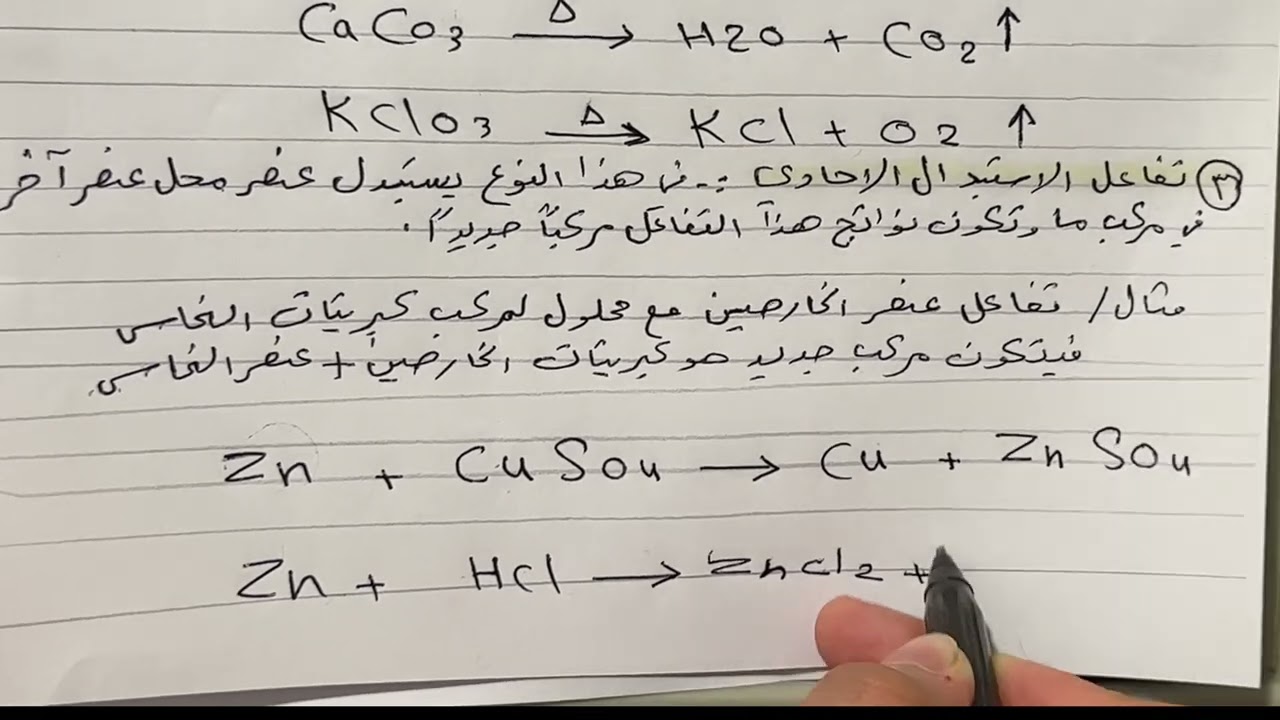 CaCo3 —Δ→ H2O + CO2 ↑
KClO3 —Δ→ KCl + O2 ↑
٣ تفاعل الاستبدال الاحادي :- في هذا النوع يستبدل عنصر محل عنصر آخر
في مركب ما وتكون نواتج هذا التفاعل مركباً جديداً.
مثال/ تفاعل عنصر الخارصين مع محلول لمركب كبريتات النحاس
فيتكون مركب جديد هو كبريتات الخارصين + عنصر النحاس.
Zn + CuSO4 → Cu + ZnSO4
Zn + HCl → ZnCl2 +